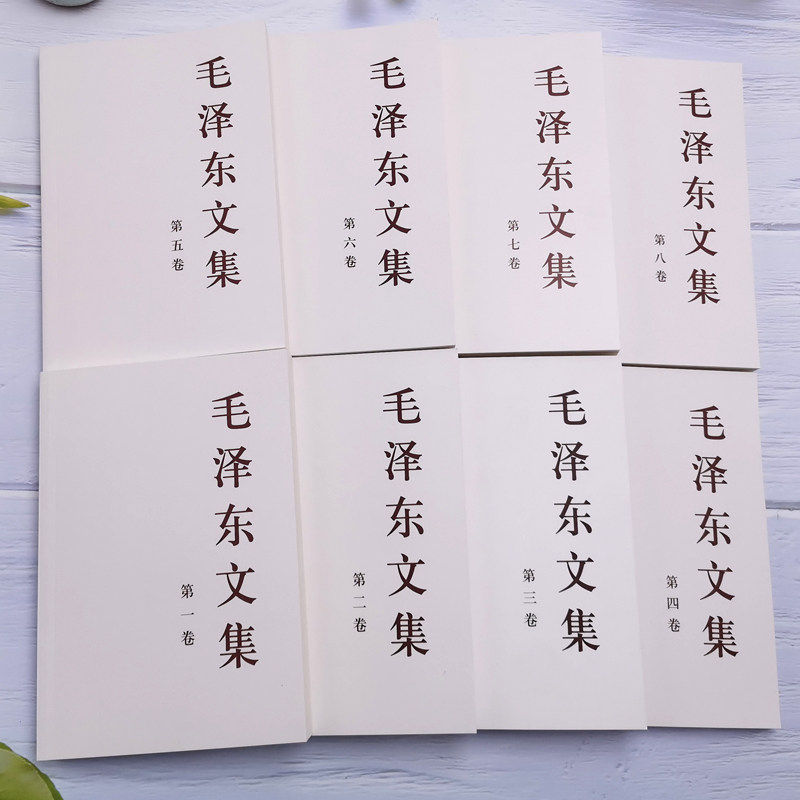 毛泽东文集
第五卷
毛泽东文集
第六卷
毛泽东文集
第七卷
毛泽东文集
第八卷
毛泽东文集
第一卷
毛泽东文集
第二卷
毛泽东文集
第三卷
毛泽东文集
第四卷